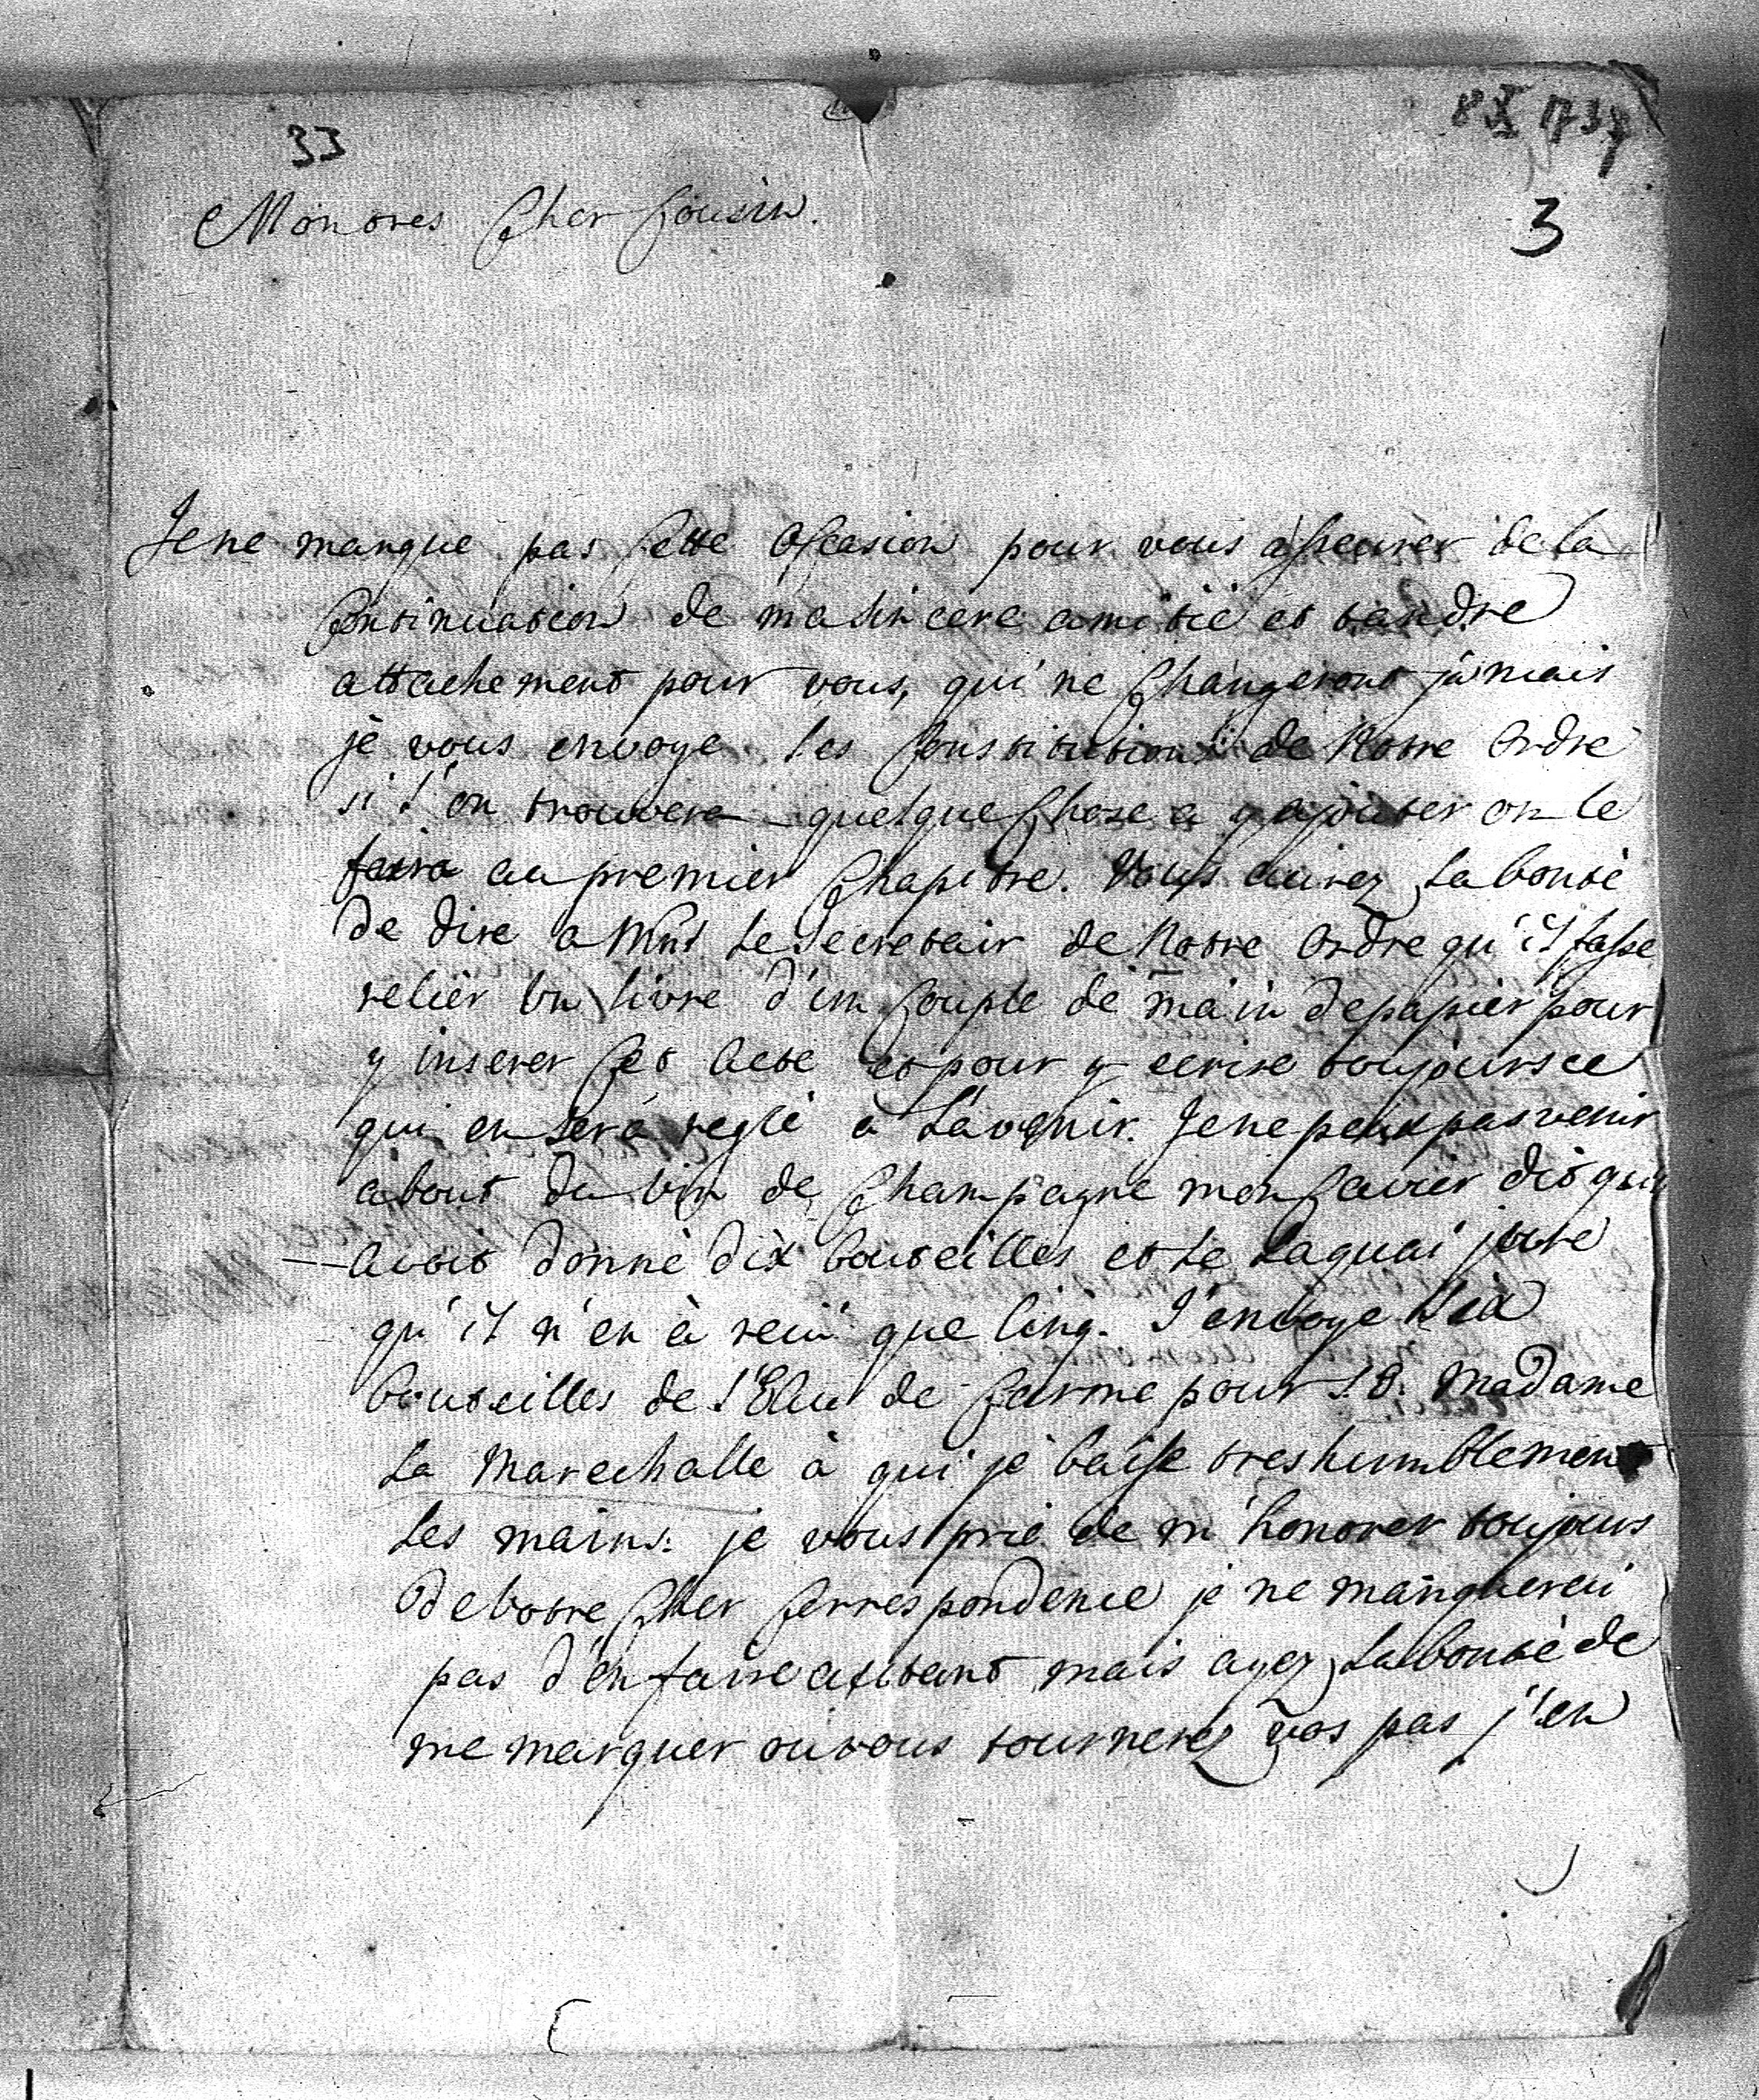 33
8 X 1737
3
Mon tres Cher Cousin.
Je ne manque pas Cette Occasion pour vous asseurer de la
Continuation de ma sincere amitié et tandre
attachement pour vous, qui ne Changeront jamais
je vous envoye les Constitutions de Notre Ordre
si l'on trouvera quelque Chose a y ajouter on le
faira au premier Chapitre. Vous aurez la bonté
de dire a Mnś le Secretair de Notre Ordre qu'il fasse
relier un livre d'un Couple de main de papier pour
y inserer Cet Acte et pour y ecrire toujours ce
qui en serà reglé a L'avenir. Je ne peux pas venir
à bout du vin de Champagne mon Cavier dit qu'il
avoit donné dix bouteilles et Le Laquai jure
qu'il n'en à reçu que Cinq. J'envoye Six
bouteilles de l'Eau de Carme pour S. E. Madame
La Marechalle à qui je baise tres humblement
Les mains: je vous prie de m'honorer toujours
de Votre Cher Correspondence je ne manquerai
pas d'en faire autant mais ayez La bonté de
me marquer ou vous tournerez vos pas j'en